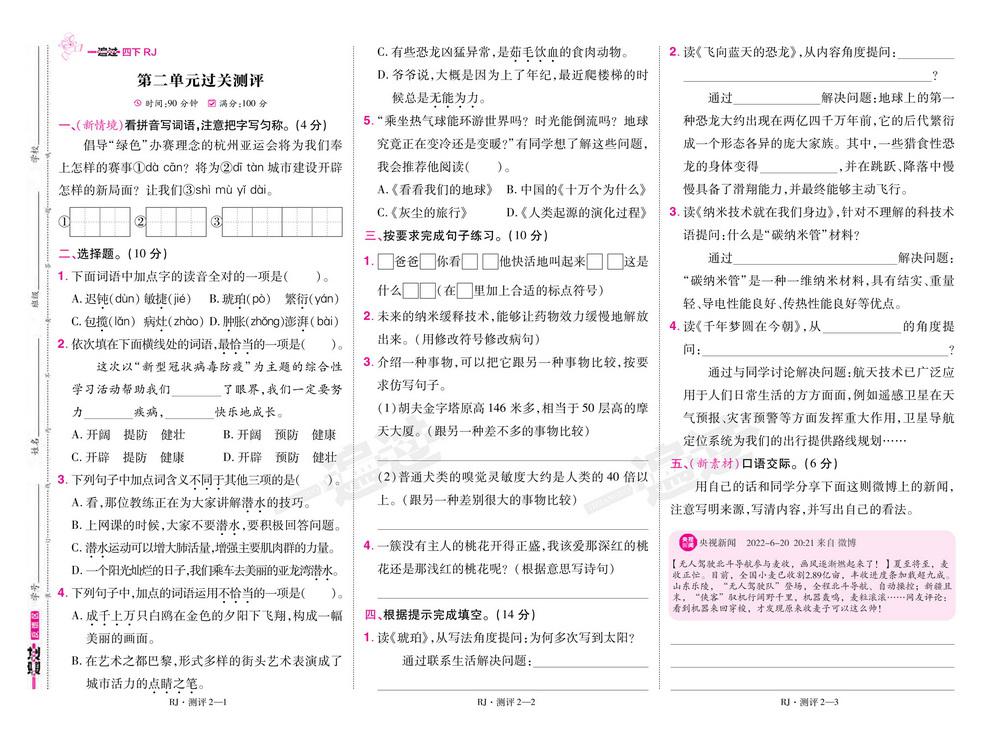 一遍过 四下 RJ
第二单元过关测评
时间:90 分钟 满分:100 分
一、(新情境)看拼音写词语,注意把字写匀称。(4 分)
倡导“绿色”办赛理念的杭州亚运会将为我们奉
上怎样的赛事①dà cān? 将为②dī tàn 城市建设开辟
怎样的新局面? 让我们③shì mù yǐ dài。
① ② ③
二、选择题。(10 分)
1. 下面词语中加点字的读音全对的一项是( )。
A. 迟钝(dùn) 敏捷(jié) B. 琥珀(pò) 繁衍(yán)
C. 包揽(lǎn) 病灶(zhào) D. 肿胀(zhǒng)澎湃(bài)
2. 依次填在下面横线处的词语,最恰当的一项是( )。
这次以“新型冠状病毒防疫”为主题的综合性
学习活动帮助我们________了眼界,我们一定要努
力________疾病,________快乐地成长。
A. 开阔 提防 健壮 B. 开阔 预防 健康
C. 开辟 提防 健康 D. 开辟 预防 健壮
3. 下列句子中加点词含义不同于其他三项的是( )。
A. 看,那位教练正在为大家讲解潜水的技巧。
B. 上网课的时候,大家不要潜水,要积极回答问题。
C. 潜水运动可以增大肺活量,增强主要肌肉群的力量。
D. 一个阳光灿烂的日子,我们乘车去美丽的亚龙湾潜水。
4. 下列句子中,加点的词语运用不恰当的一项是( )。
A. 成千上万只白鸥在金色的夕阳下飞翔,构成一幅
美丽的画面。
B. 在艺术之都巴黎,形式多样的街头艺术表演成了
城市活力的点睛之笔。
RJ·测评 2—1
C. 有些恐龙凶猛异常,是茹毛饮血的食肉动物。
D. 爷爷说,大概是因为上了年纪,最近爬楼梯的时
候总是无能为力。
5. “乘坐热气球能环游世界吗? 时光能倒流吗? 地球
究竟正在变冷还是变暖?”有同学想了解这些问题,
我会推荐他阅读( )。
A.《看看我们的地球》 B. 中国的《十万个为什么》
C.《灰尘的旅行》 D.《人类起源的演化过程》
三、按要求完成句子练习。(10 分)
1. □爸爸□你看□ □他快活地叫起来□ □这是
什么□□(在□里加上合适的标点符号)
2. 未来的纳米缓释技术,能够让药物效力缓慢地解放
出来。(用修改符号修改病句)
3. 介绍一种事物,可以把它跟另一种事物比较,按要
求仿写句子。
(1)胡夫金字塔原高 146 米多,相当于 50 层高的摩
天大厦。(跟另一种差不多的事物比较)
(2)普通犬类的嗅觉灵敏度大约是人类的 40 倍以
上。(跟另一种差别很大的事物比较)
4. 一簇没有主人的桃花开得正盛,我该爱那深红的桃
花还是那浅红的桃花呢?(根据意思写诗句)
四、根据提示完成填空。(14 分)
1. 读《琥珀》,从写法角度提问:为何多次写到太阳?
通过联系生活解决问题:________________
RJ·测评 2—2
2. 读《飞向蓝天的恐龙》,从内容角度提问:________
________________________________?
通过____________解决问题:地球上的第一
种恐龙大约出现在两亿四千万年前,它的后代繁衍
成一个形态各异的庞大家族。其中,一些猎食性恐
龙的身体变得____________,并在跳跃、降落中慢
慢具备了滑翔能力,并最终能够主动飞行。
3. 读《纳米技术就在我们身边》,针对不理解的科技术
语提问:什么是“碳纳米管”材料?
通过________________________解决问题:
“碳纳米管”是一种一维纳米材料,具有结实、重量
轻、导电性能良好、传热性能良好等优点。
4. 读《千年梦圆在今朝》,从____________的角度提
问:________________________________?
通过与同学讨论解决问题:航天技术已广泛应
用于人们日常生活的方方面面,例如遥感卫星在天
气预报、灾害预警等方面发挥重大作用,卫星导航
定位系统为我们的出行提供路线规划……
五、(新素材)口语交际。(6 分)
用自己的话和同学分享下面这则微博上的新闻,
注意写明来源,写清内容,并写出自己的看法。
央视新闻 央视新闻 2022-6-20 20:21 来自 微博
【无人驾驶北斗导航参与麦收,画风逐渐燃起来了!】夏至将至,麦
收正忙。目前,全国小麦已收割2.89亿亩,丰收进度条加载超九成。
山东乐陵,“无人驾驶队”登场,全程北斗导航,自动操控;新疆且
末,“侠客”驭机行阔野千里,机器轰鸣,麦粒滚滚……网友评论:
看到机器来回穿梭,才发现原来收麦子可以这么帅!
RJ·测评 2—3
学校
班级
姓名
学号
一遍过 反馈区
一遍过
一遍过